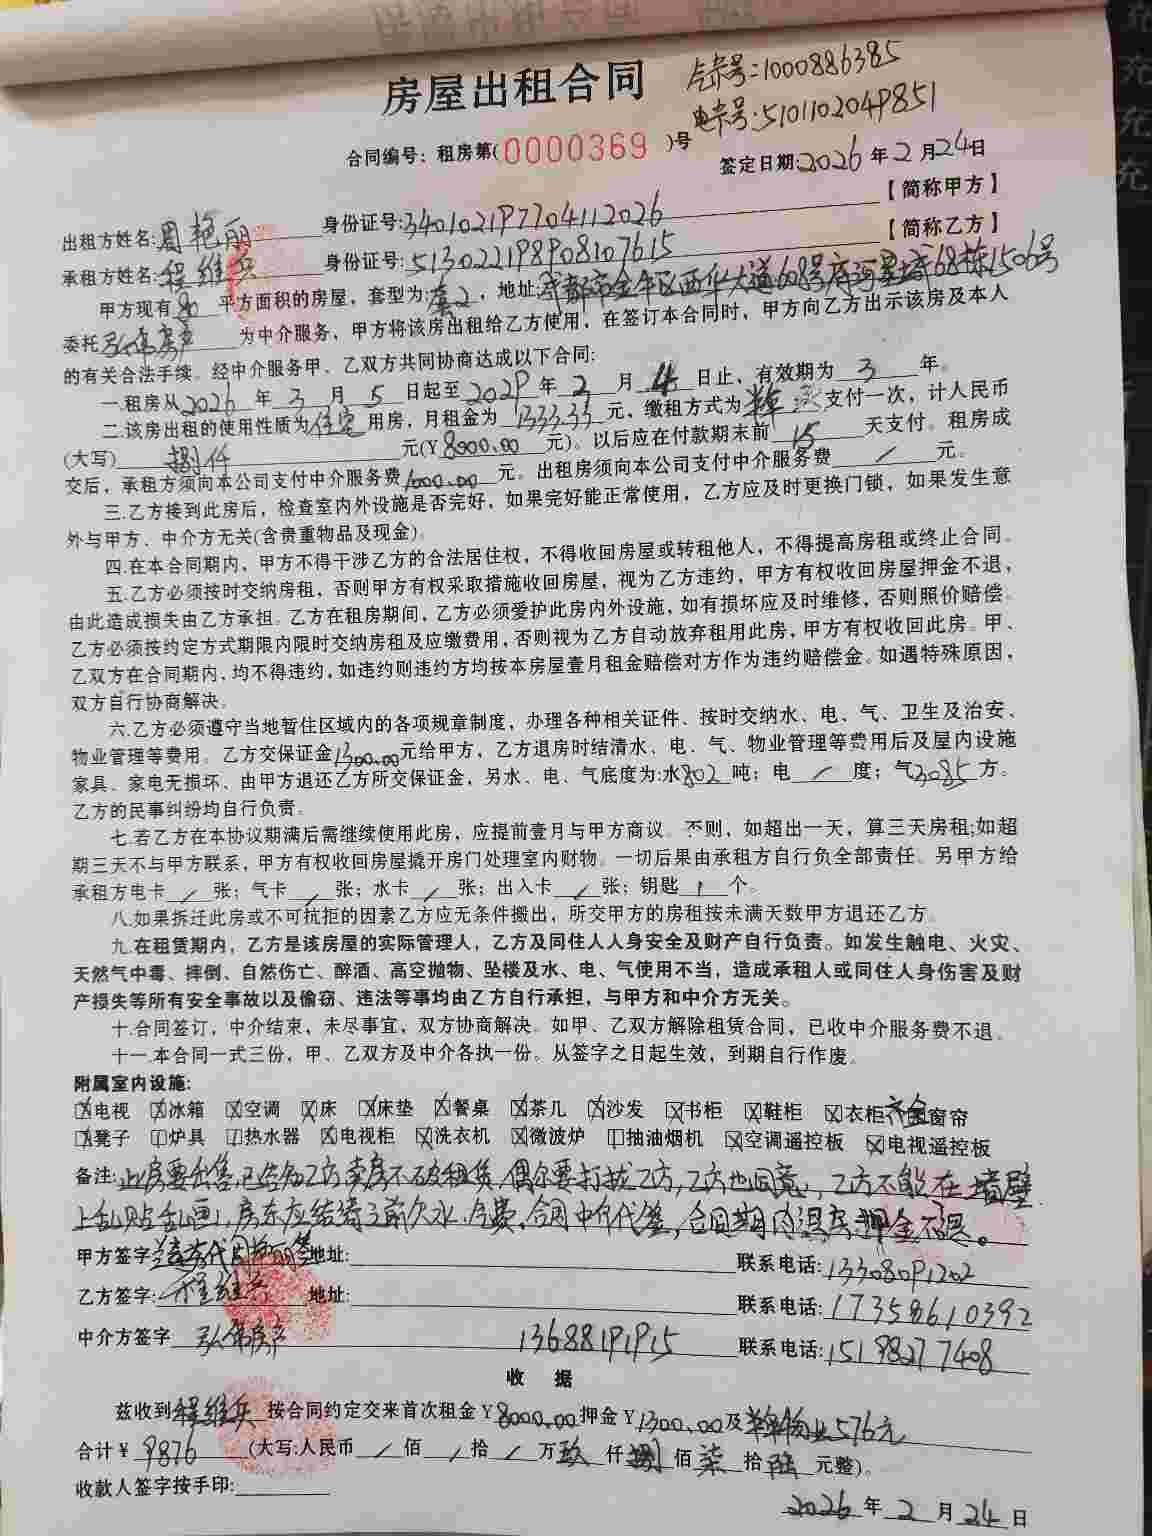 房屋出租合同
气卡号:1000886385
电卡号:5101102049851
合同编号：租房第(0000369)号
签定日期:2026年2月24日
出租方姓名:周艳丽 身份证号:340102197704112026 【简称甲方】
承租方姓名:程维兵 身份证号:513022198908107615 【简称乙方】
甲方现有80平方面积的房屋，套型为:套2，地址:成都市金牛区西华大道608号府河星城68栋1506号
委托弘伟房产为中介服务，甲方将该房出租给乙方使用，在签订本合同时，甲方向乙方出示该房及本人
的有关合法手续。经中介服务甲、乙双方共同协商达成以下合同:
一.租房从2026年3月5日起至2029年2月4日止、有效期为3年。
二.该房出租的使用性质为住宅用房，月租金为1333.33元，缴租方式为半年支付一次，计人民币
(大写)捌仟元(￥8000.00元)。以后应在付款期末前15天支付。租房成
交后，承租方须向本公司支付中介服务费1000.00元。出租房须向本公司支付中介服务费/元。
三.乙方接到此房后，检查室内外设施是否完好，如果完好能正常使用，乙方应及时更换门锁，如果发生意
外与甲方、中介方无关(含贵重物品及现金)。
四.在本合同期内，甲方不得干涉乙方的合法居住权，不得收回房屋或转租他人，不得提高房租或终止合同。
五.乙方必须按时交纳房租，否则甲方有权采取措施收回房屋，视为乙方违约，甲方有权收回房屋押金不退，
由此造成损失由乙方承担。乙方在租房期间，乙方必须爱护此房内外设施，如有损坏应及时维修，否则照价赔偿。
乙方必须按约定方式期限内限时交纳房租及应缴费用，否则视为乙方自动放弃租用此房，甲方有权收回此房。甲、
乙双方在合同期内、均不得违约，如违约则违约方均按本房屋壹月租金赔偿对方作为违约赔偿金。如遇特殊原因，
双方自行协商解决。
六.乙方必须遵守当地暂住区域内的各项规章制度，办理各种相关证件、按时交纳水、电、气、卫生及治安、
物业管理等费用。乙方交保证金1300.00元给甲方，乙方退房时结清水、电、气、物业管理等费用后及屋内设施
家具、家电无损坏、由甲方退还乙方所交保证金，另水、电、气底度为:水802吨；电/度；气3085方。
乙方的民事纠纷均自行负责。
七.若乙方在本协议期满后需继续使用此房，应提前壹月与甲方商议。否则，如超出一天，算三天房租;如超
期三天不与甲方联系，甲方有权收回房屋撬开房门处理室内财物。一切后果由承租方自行负全部责任。另甲方给
承租方电卡/张；气卡/张；水卡/张；出入卡/张；钥匙1个。
八.如果拆迁此房或不可抗拒的因素乙方应无条件搬出，所交甲方的房租按未满天数甲方退还乙方。
九.在租赁期内，乙方是该房屋的实际管理人，乙方及同住人人身安全及财产自行负责。如发生触电、火灾、
天然气中毒、摔倒、自然伤亡、醉酒、高空抛物、坠楼及水、电、气使用不当，造成承租人或同住人身伤害及财
产损失等所有安全事故以及偷窃、违法等事均由乙方自行承担，与甲方和中介方无关。
十.合同签订，中介结束，未尽事宜，双方协商解决。如甲、乙双方解除租赁合同，已收中介服务费不退。
十一.本合同一式三份，甲、乙双方及中介各执一份。从签字之日起生效，到期自行作废。
附属室内设施:
电视 冰箱 空调 床 床垫 餐桌 茶几 沙发 书柜 鞋柜 衣柜 齐全 窗帘
凳子 炉具 热水器 电视柜 洗衣机 微波炉 抽油烟机 空调遥控板 电视遥控板
备注:此房要出售,已告知乙方卖房不破租赁,偶尔要打扰乙方,乙方也同意,乙方不能在墙壁
上乱贴乱画,房东应结清之前欠水、气费,合同中介代签,合同期内退房押金不退。
甲方签字:代周艳丽签 地址: 联系电话:13308091202
乙方签字:程维兵 地址: 联系电话:17358610392
中介方签字 弘伟房产 13688191915 联系电话:15198277408
收 据
兹收到程维兵按合同约定交来首次租金￥8000.00押金￥1300.00及半年物业576元
合计￥9876(大写:人民币/佰/拾/万玖仟捌佰柒拾陆元整)。
收款人签字按手印:
2026年2月24日